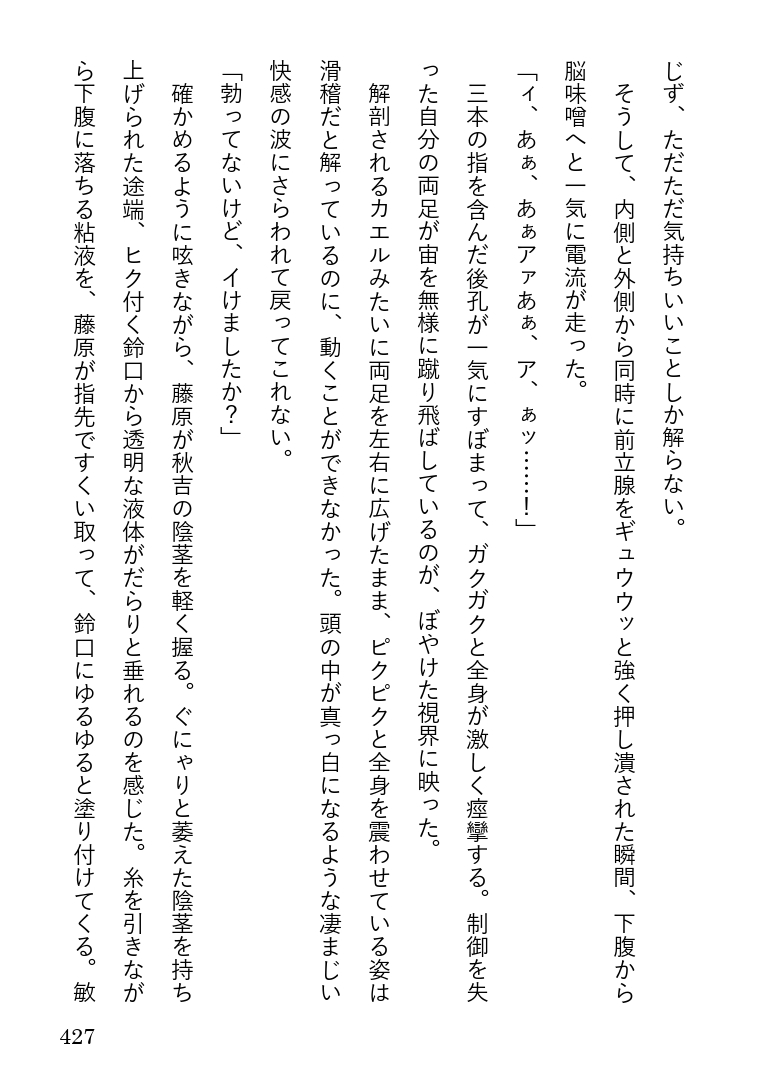 じず、ただただ気持ちいいことしか解らない。
　そうして、内側と外側から同時に前立腺をギュウウッと強く押し潰された瞬間、下腹から
脳味噌へと一気に電流が走った。
「ィ、あぁ、あぁアァあぁ、ア、ぁッ……！」
　三本の指を含んだ後孔が一気にすぼまって、ガクガクと全身が激しく痙攣する。制御を失
った自分の両足が宙を無様に蹴り飛ばしているのが、ぼやけた視界に映った。
　解剖されるカエルみたいに両足を左右に広げたまま、ピクピクと全身を震わせている姿は
滑稽だと解っているのに、動くことができなかった。頭の中が真っ白になるような凄まじい
快感の波にさらわれて戻ってこれない。
「勃ってないけど、イけましたか？」
　確かめるように呟きながら、藤原が秋吉の陰茎を軽く握る。ぐにゃりと萎えた陰茎を持ち
上げられた途端、ヒク付く鈴口から透明な液体がだらりと垂れるのを感じた。糸を引きなが
ら下腹に落ちる粘液を、藤原が指先ですくい取って、鈴口にゆるゆると塗り付けてくる。敏
427